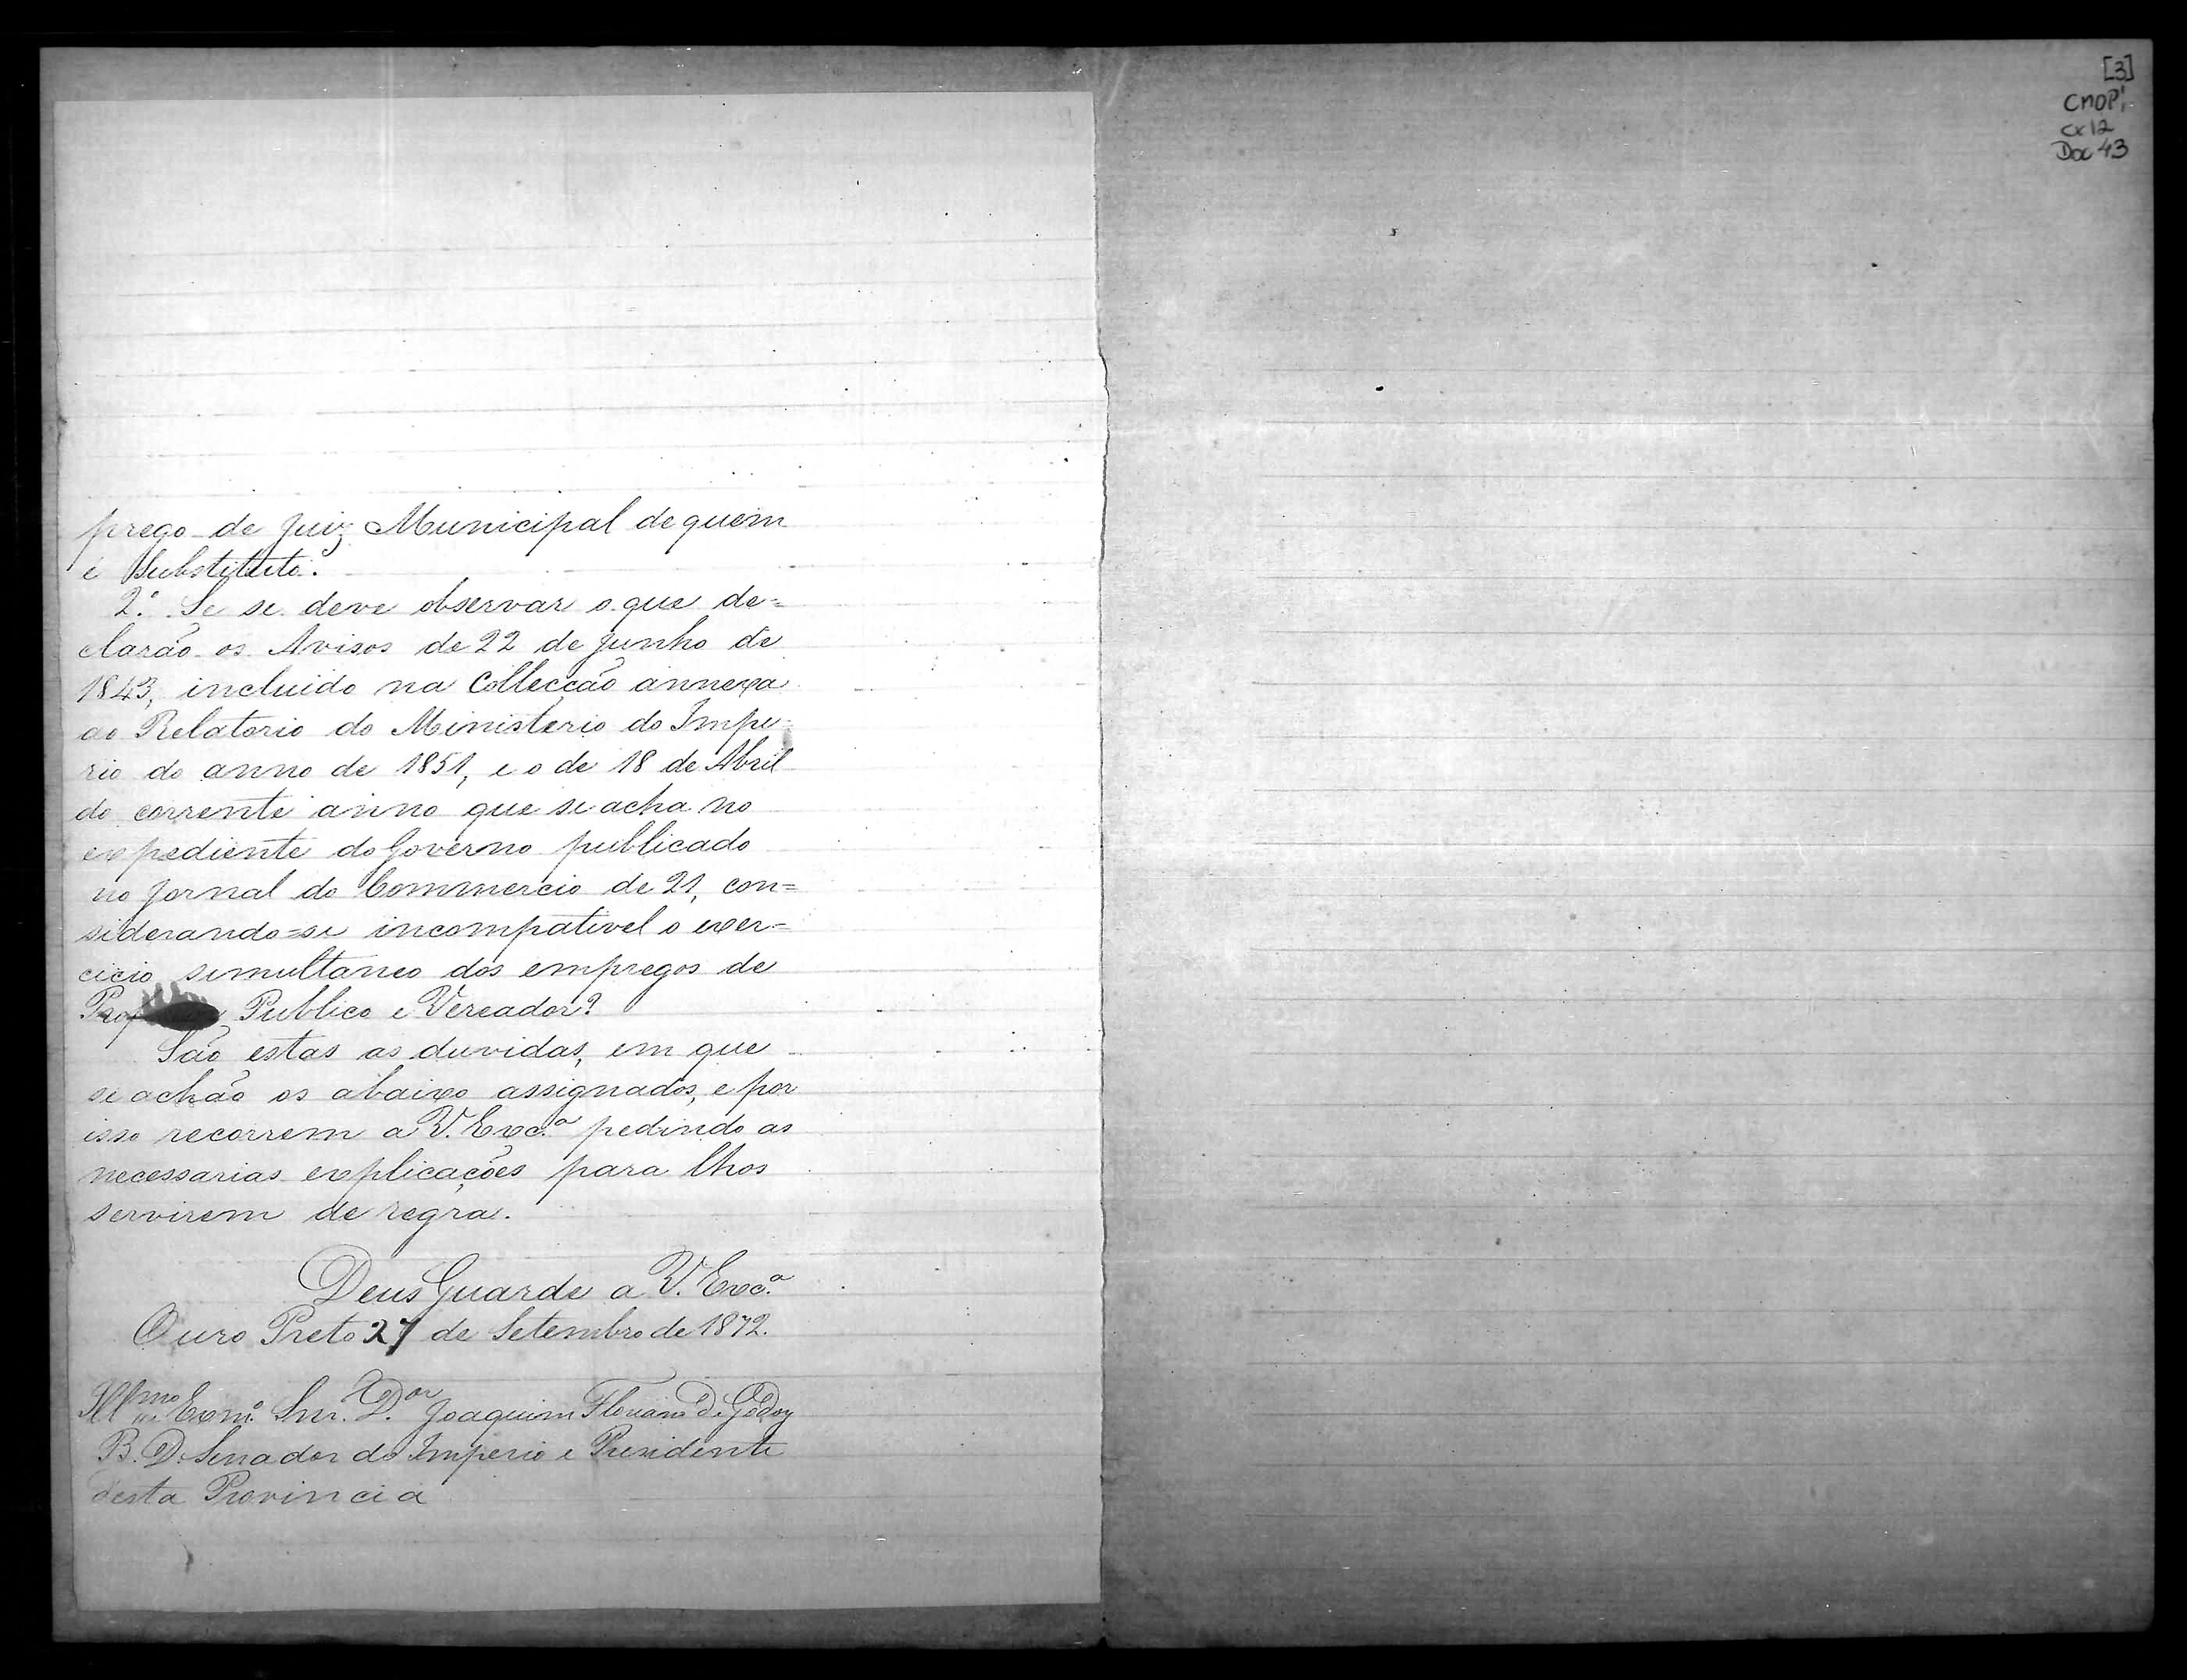 prego de Juiz Municipal de quem
é Substituto.
2.º Se se deve observar o que de=
clarão os Avisos de 22 de Junho de
1843, incluido na Collecção annexa
ao Relatorio do Ministerio do Impe=
rio do anno de 1851, e o de 18 de Abril
do corrente anno que se acha no
expediente do Governo publicado
no Jornal do Commercio de 21, con=
siderando=se incompativel o exer=
cicio simultaneo dos empregos de
Publico e Vereador?
São estas as duvidas, em que
se achão os abaixo assignados, e por
isso recorrem a V. Exc.ª pedindo as
necessarias explicações para lhos
servirem de regra.
Deus Guarde a V. Exc.ª
Ouro Preto 27 de Setembro de 1872.
Ill.mo Exm.º Snr. D.or Joaquim Floriano de Godoy
D. Senador do Imperio e Presidente
desta Provincia
[3]
CMOP
cx 12
Doc 43